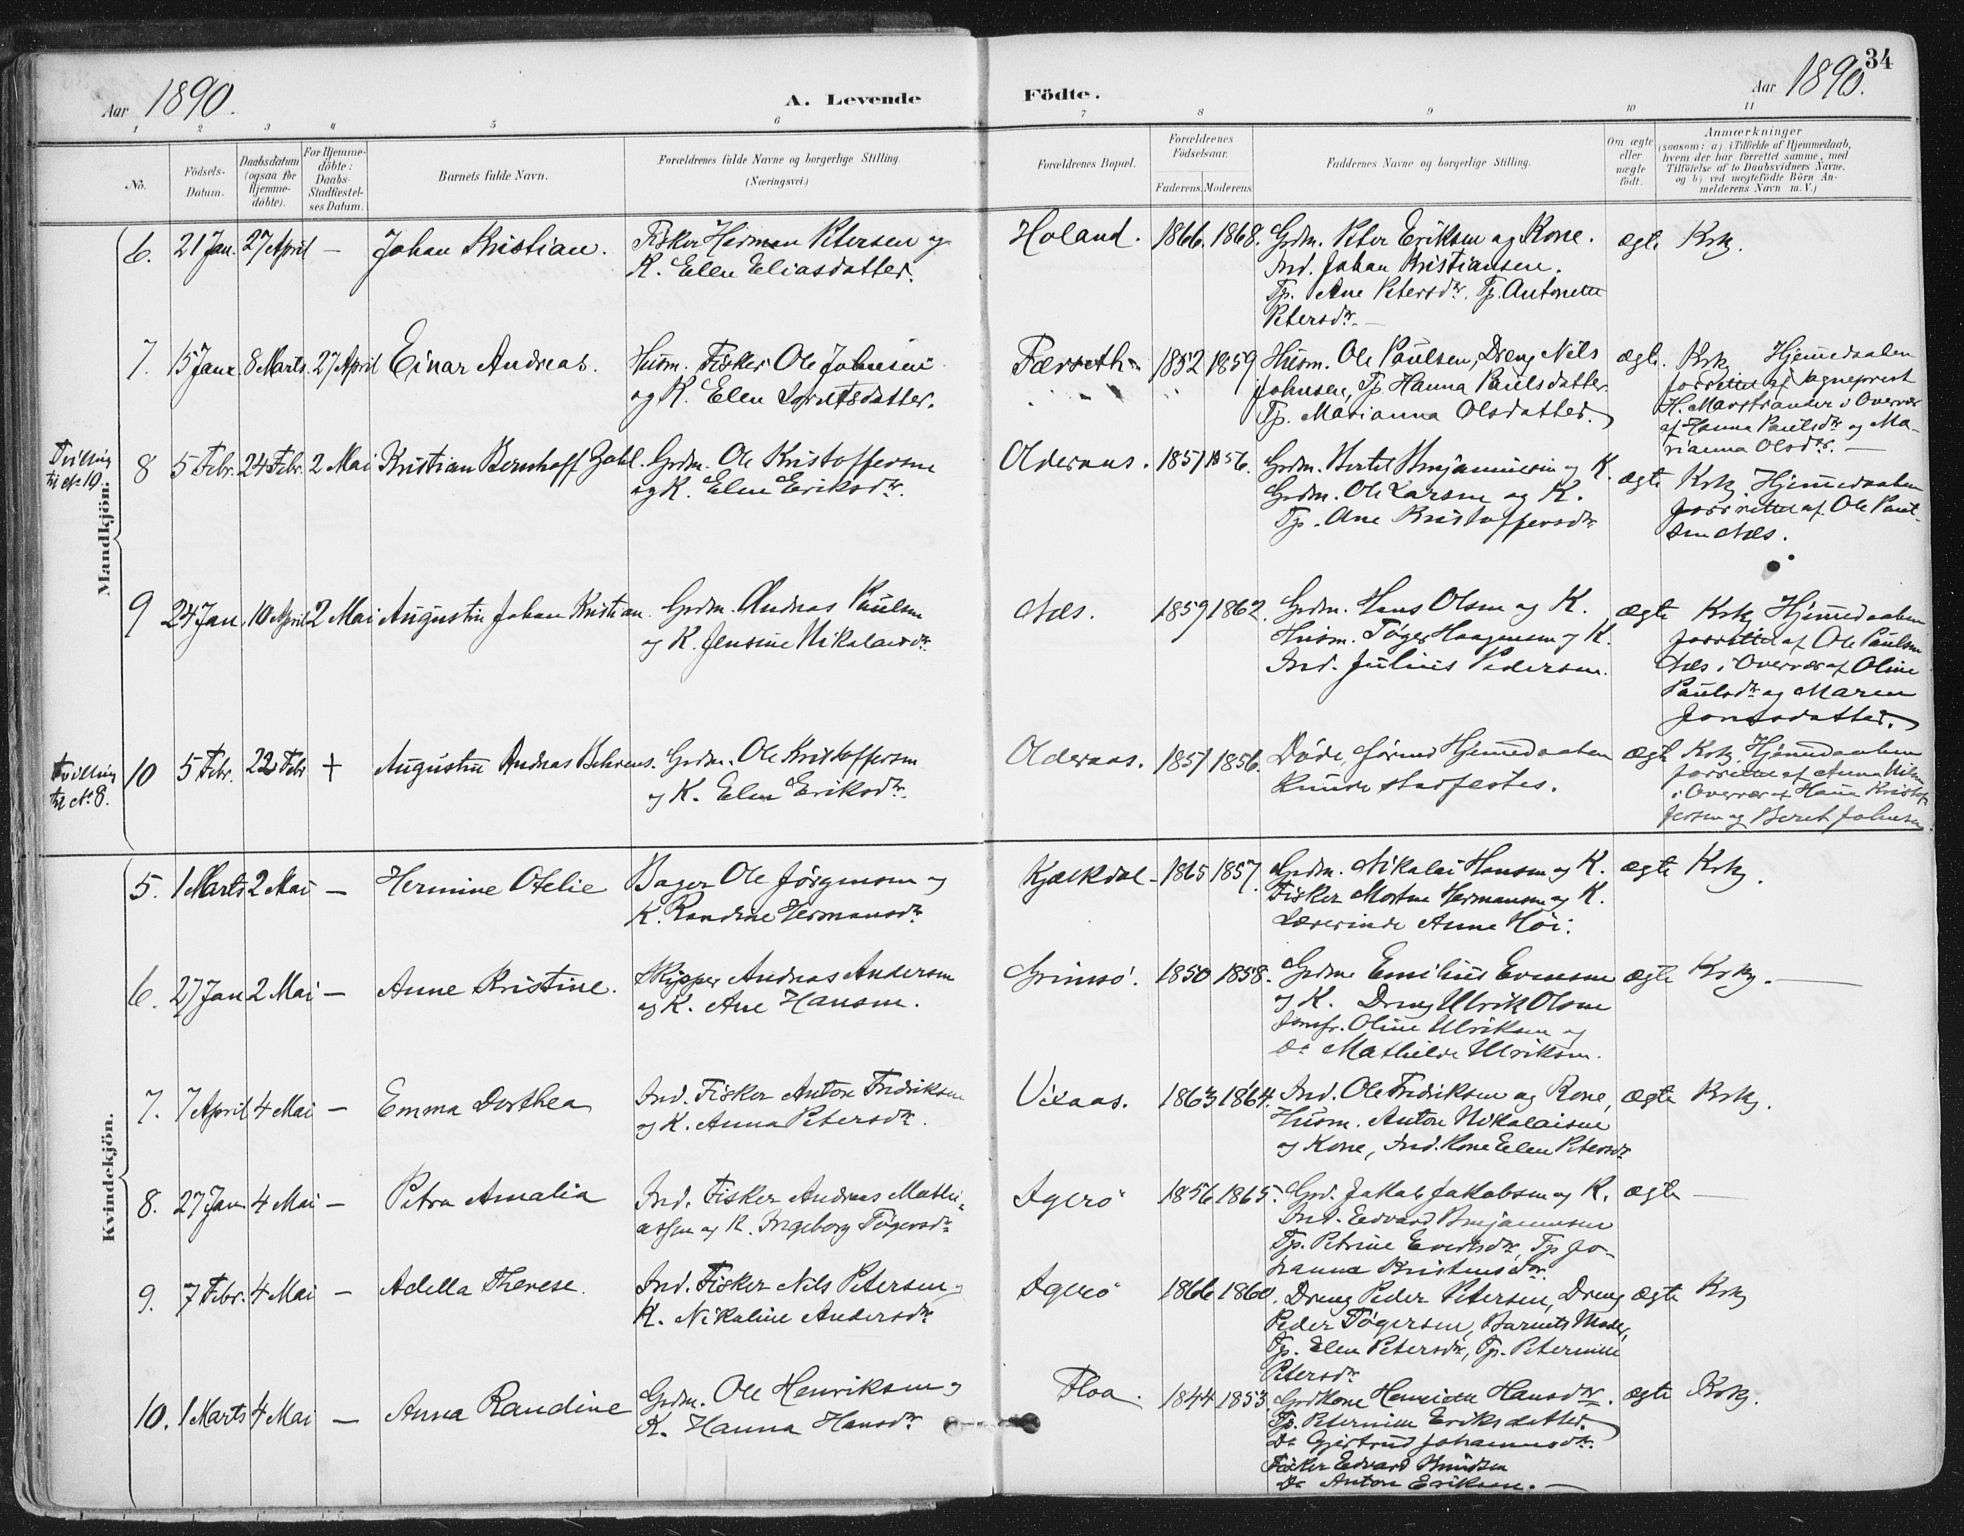 34
Aar 1890.
A. Levende Födte.
Aar 1890.
1 2 3 4 5 6 7 8 9 10 11
No.
Födsels-Datum.
Daabsdatum (ogsaa for Hjemme-döbte).
For Hjemme-döbte: Daabs-Stadfæstel-ses Datum.
Barnets fulde Navn.
Forældrenes fulde Navne og borgerlige Stilling.
(Næringsvei.)
Forældrenes Bopæl.
Forældrenes Födselsaar.
Faderens. Moderens.
Faddernes Navne og borgerlige Stilling.
Om ægte eller uægte födt.
Anmærkninger
(saasom: a) i Tilfælde af Hjemmedaab, hvem der har forrettet samme, med Tilföielse af to Daabsvidners Navne. og b) ved uægtefödte Börn An-melderens Navn m. V.)
Mandkjön.
6. 21 Jan. 27 April — Johan Kristian. Fisker Herman Petersen og
K. Elen Eliasdatter.
Holand. 1866 1868. Grdm. Peter Eriksen og Kone.
Ind. Johan Kristiansen.
Tp. Ane Petersdtr. Tp. Antonette
Petersdtr. —
ægte Krkg.
7. 15 Janr. 8 Marts 27 April Einar Andreas. Husm. Fisker Ole Johnsen
og K. Elen Lorntsdatter.
Færseth 1852 1859 Husm. Ole Paulsen, Dreng Nils
Johnsen, Tp Hanna Paulsdatter
Tp. Marianna Olsdatter.
ægte. Krkg Hjemmedaaben
forrettet af Sogneprest
H. Marstrander i Overvær
af Hanna Paulsdtr og Ma-
rianna Olsdtr. —
Tvilling
til No 10.
8 5 Febr. 24 Febr. 2 Mai Kristian Bernhoff Zahl. Grdm. Ole Kristoffersen
og K. Elen Eriksdtr.
Olderaas. 1857 1856. Grdm. Bertel Benjaminsen og K.
Grdm. Ole Larsen og K.
Tp. Ane Kristoffersdtr
ægte Krkg. Hjemmedaaben
forrettet af Ole Paul-
sen Næs.
9 24 Jan. 10 April 2 Mai Augustin Johan Kristian. Grdm. Andreas Paulsen
og K. Jensine Nikolaisdtr.
Næs. 1859 1862. Grdm. Hans Olsen og K.
Husm. Tøger Haagensen og K.
Ind. Julius Pedersen.
ægte Krkg Hjemmedaaben
forrettet af Ole Paulsen
Næs i Overvær af Oline
Paulsdtr og Maren
Jonasdatter.
Tvilling
til No 8.
10 5 Febr. 22 Febr + Augustin Andreas Behrens. Grdm. Ole Kristoffersen
og K. Elen Eriksdtr.
Olderaas. 1857 1856. Døde, førend Hjemmedaaben
kunde stadfestes.
ægte Krkg. Hjemmedaaben
forrettet af Anna Nilsen
i Overvær af Hans Kristof-
fersen og Beret Johnsen
Kvindekjön.
5. 1 Marts 2 Mai — Hermine Otelie Bager Ole Jørgensen og
K. Randine Hermansdtr
Kjælkdal 1865 1857. Grdm. Nikolai Hansen og K.
Fisker Morten Hermansen og K.
Lærerinde Anne Høi.
ægte Krkg.
6. 27 Jan 2 Mai — Anne Kristine. Skipper Andreas Andersen
og K. Ane Hansen.
Grimsø. 1850 1858. Grdm Emilius Evensen
og K. Dreng Ulrik Olsen
Jomfr. Oline Ulriksen og
Do Mathilde Ulriksen.
ægte Krkg. —
7. 7 April 4 Mai — Emma Dorthea Ind. Fisker Anton Fredriksen
og K. Anna Petersdtr.
Vixaas. 1863 1864. Ind. Ole Fredriksen og Kone,
Husm. Anton Nikolaisen
og Kone, Ind. Kone Elen Petersdtr
ægte Krkg.
8. 27 Jan. 4 Mai — Petra Amalia Ind. Fisker Andreas Mathi-
assen og K. Ingeborg Tøgersdtr
Agerø 1856 1865. Grd. Jakob Jakobsen og K.
Ind. Edvard Benjaminsen
Tp. Petrine Evertsdtr, Tp Jo-
hanna Kristensdtr.
ægte —
9. 7 Febr. 4 Mai — Adella Therese. Ind. Fisker Nils Petersen og
K. Nikoline Andersdtr
Agerø 1866 1860. Dreng Peder Petersen, Dreng
Peder Tøgersen, Barnets Moder,
Tp. Elen Petersdtr, Tp. Petermine
Petersdtr
ægte Krkg
10. 1 Marts 4 Mai — Anna Randine Grdm. Ole Henriksen og
K. Hanna Hansdtr
Floa. 1844 1853. Grdkone Henriette Hansdtr.
Tp. Petermine Eriksdatter.
Do Gjertrud Johannesdtr.
Fisker Edvard Knudsen
Do Anton Eriksen. —
ægte Krkg.